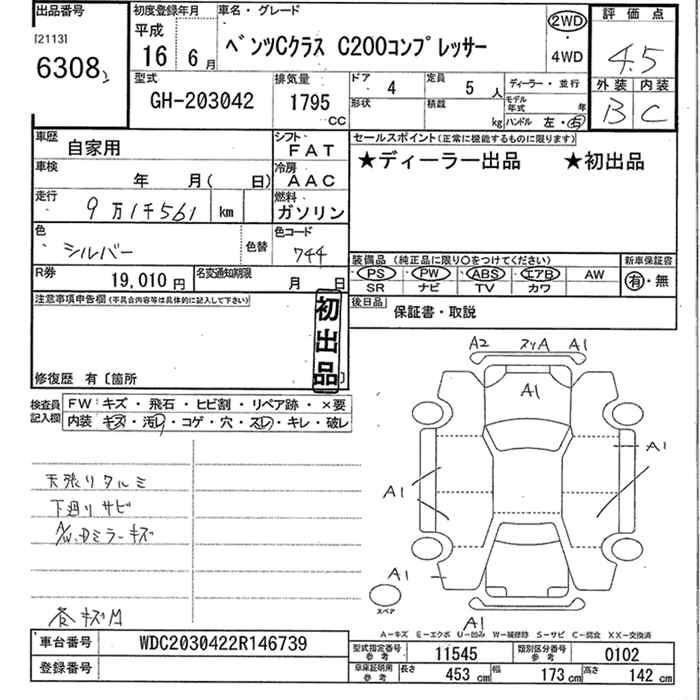 出品番号
[2113]
6308
初度登録年月
平成
16 6月
車名・グレード
ベンツCクラス C200コンプレッサー
2WD
・
4WD
評価点
4.5
外装 内装
B C
型式
GH-203042
排気量
1795
CC
ドア 4
定員 5人
ディーラー・並行
形状
積載 kg
モデル年式 年
ハンドル 左・右
車歴 自家用
シフト FAT
車検 年 月( 日)
冷房 AAC
走行 9万1千561 km
燃料 ガソリン
色 シルバー
色替
色コード 744
R券 19,010円
名変通知期限 月 日
セールスポイント(正常に機能するものに限ります)
★ディーラー出品 ★初出品
装備品 (純正品に限り○をつけてください)
新車保証書
PS PW ABS エアB AW
SR ナビ TV カワ
有・無
後日品
保証書・取説
注意事項申告欄(不具合内容等は具体的に記入して下さい)
初出品
修復歴 有〔箇所 〕
検査員記入欄
FW:キズ・飛石・ヒビ割・リペア跡・×要
内装 キズ・汚れ・コゲ・穴・スレ・キレ・破レ
天張りタルミ
下廻りサビ
A/W.Dミラーキズ
巻キズM
A2 スリA A1
A1
A1
A1
A1
スペア
A1
A-キズ E-エクボ U-凹み W-補修跡 S-サビ C-腐食 XX-交換済
車台番号 WDC2030422R146739
登録番号
型式指定番号 参考 11545
類別区分番号 参考 0102
車庫証明用 参考 長さ 453cm 幅 173cm 高さ 142cm